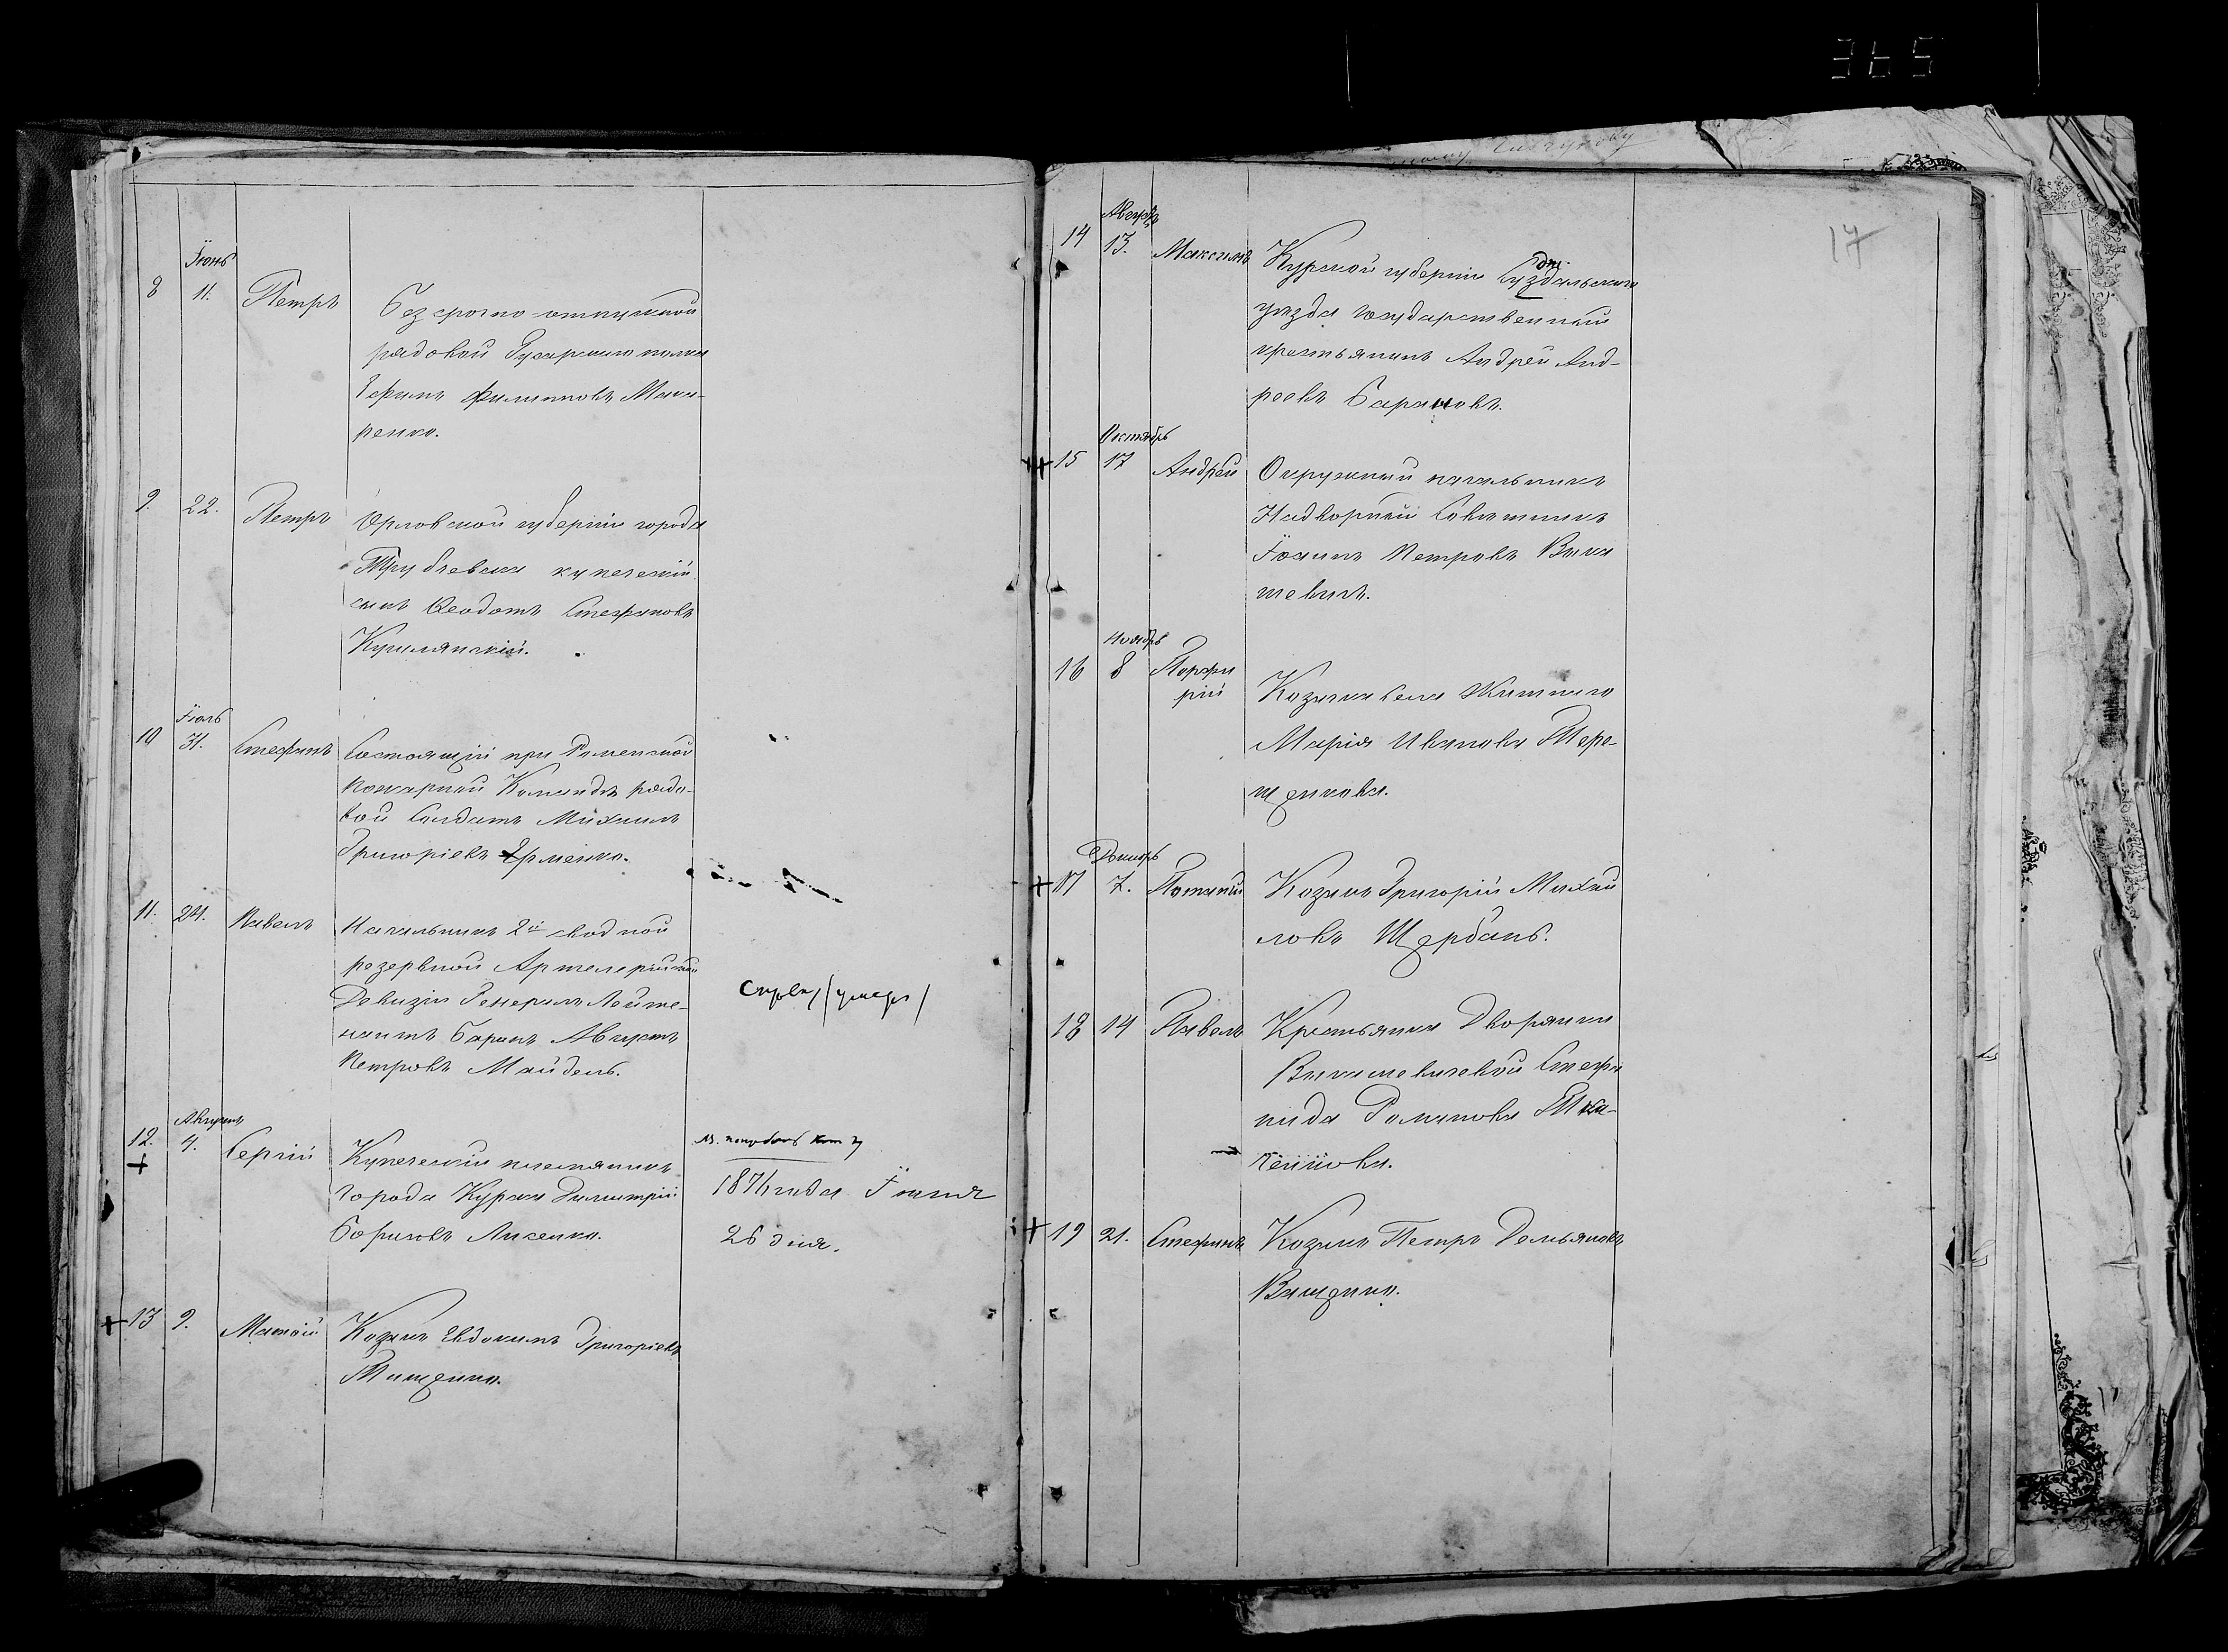 365
8
Іюнь
11.
Петръ
Безсрочно-отпускной
рядовой Гусарскаго полка
Филипповъ Мака-
ренко.
9.
22.
Петръ
Орловской губерніи города
Трубчевска купеческій
сынъ Ѳеодотъ Стефановъ
10
Іюль
31.
Стефанъ
Состоящій при Роменской
пожарной Командѣ рядо-
вой Солдатъ Михаилъ
Григоріевъ
11.
24.
Павелъ
Начальникъ 2й сводной
резервной Артилерійской
Дивизіи Генералъ Лейте-
нантъ Баронъ Августъ
Петровъ Майдель.
12.
Августъ
4.
Сергій
Купеческій племянникъ
города Курска Димитрій
Борисовъ Лисенко.
1876 года Іюня
26 дня.
13
9.
Матѳій
Козакъ Евдокимъ Григоріевъ
Тищенко.
17
14
Августъ
13.
Максимъ
Курской губерніи Суздальскаго
уѣзда государственный
крестьянинъ Андрей Анд-
реевъ
15
Октябрь
17
Андрей
Окружный начальникъ
Надворный Совѣтникъ
Іоаннъ Петровъ
16
Ноябрь
8
Порфи
рій
Козачка села
Марія Иванова Тере-
щенкова.
17
Декабрь
7.
Потапій
Козакъ Григорій Михай
ловъ Щербань.
18
14
Павелъ
Крестьянка Дворянки
Стефа
нида Романова
19
21.
Стефанъ
Козакъ Петръ Демьяновъ
Ващенко.